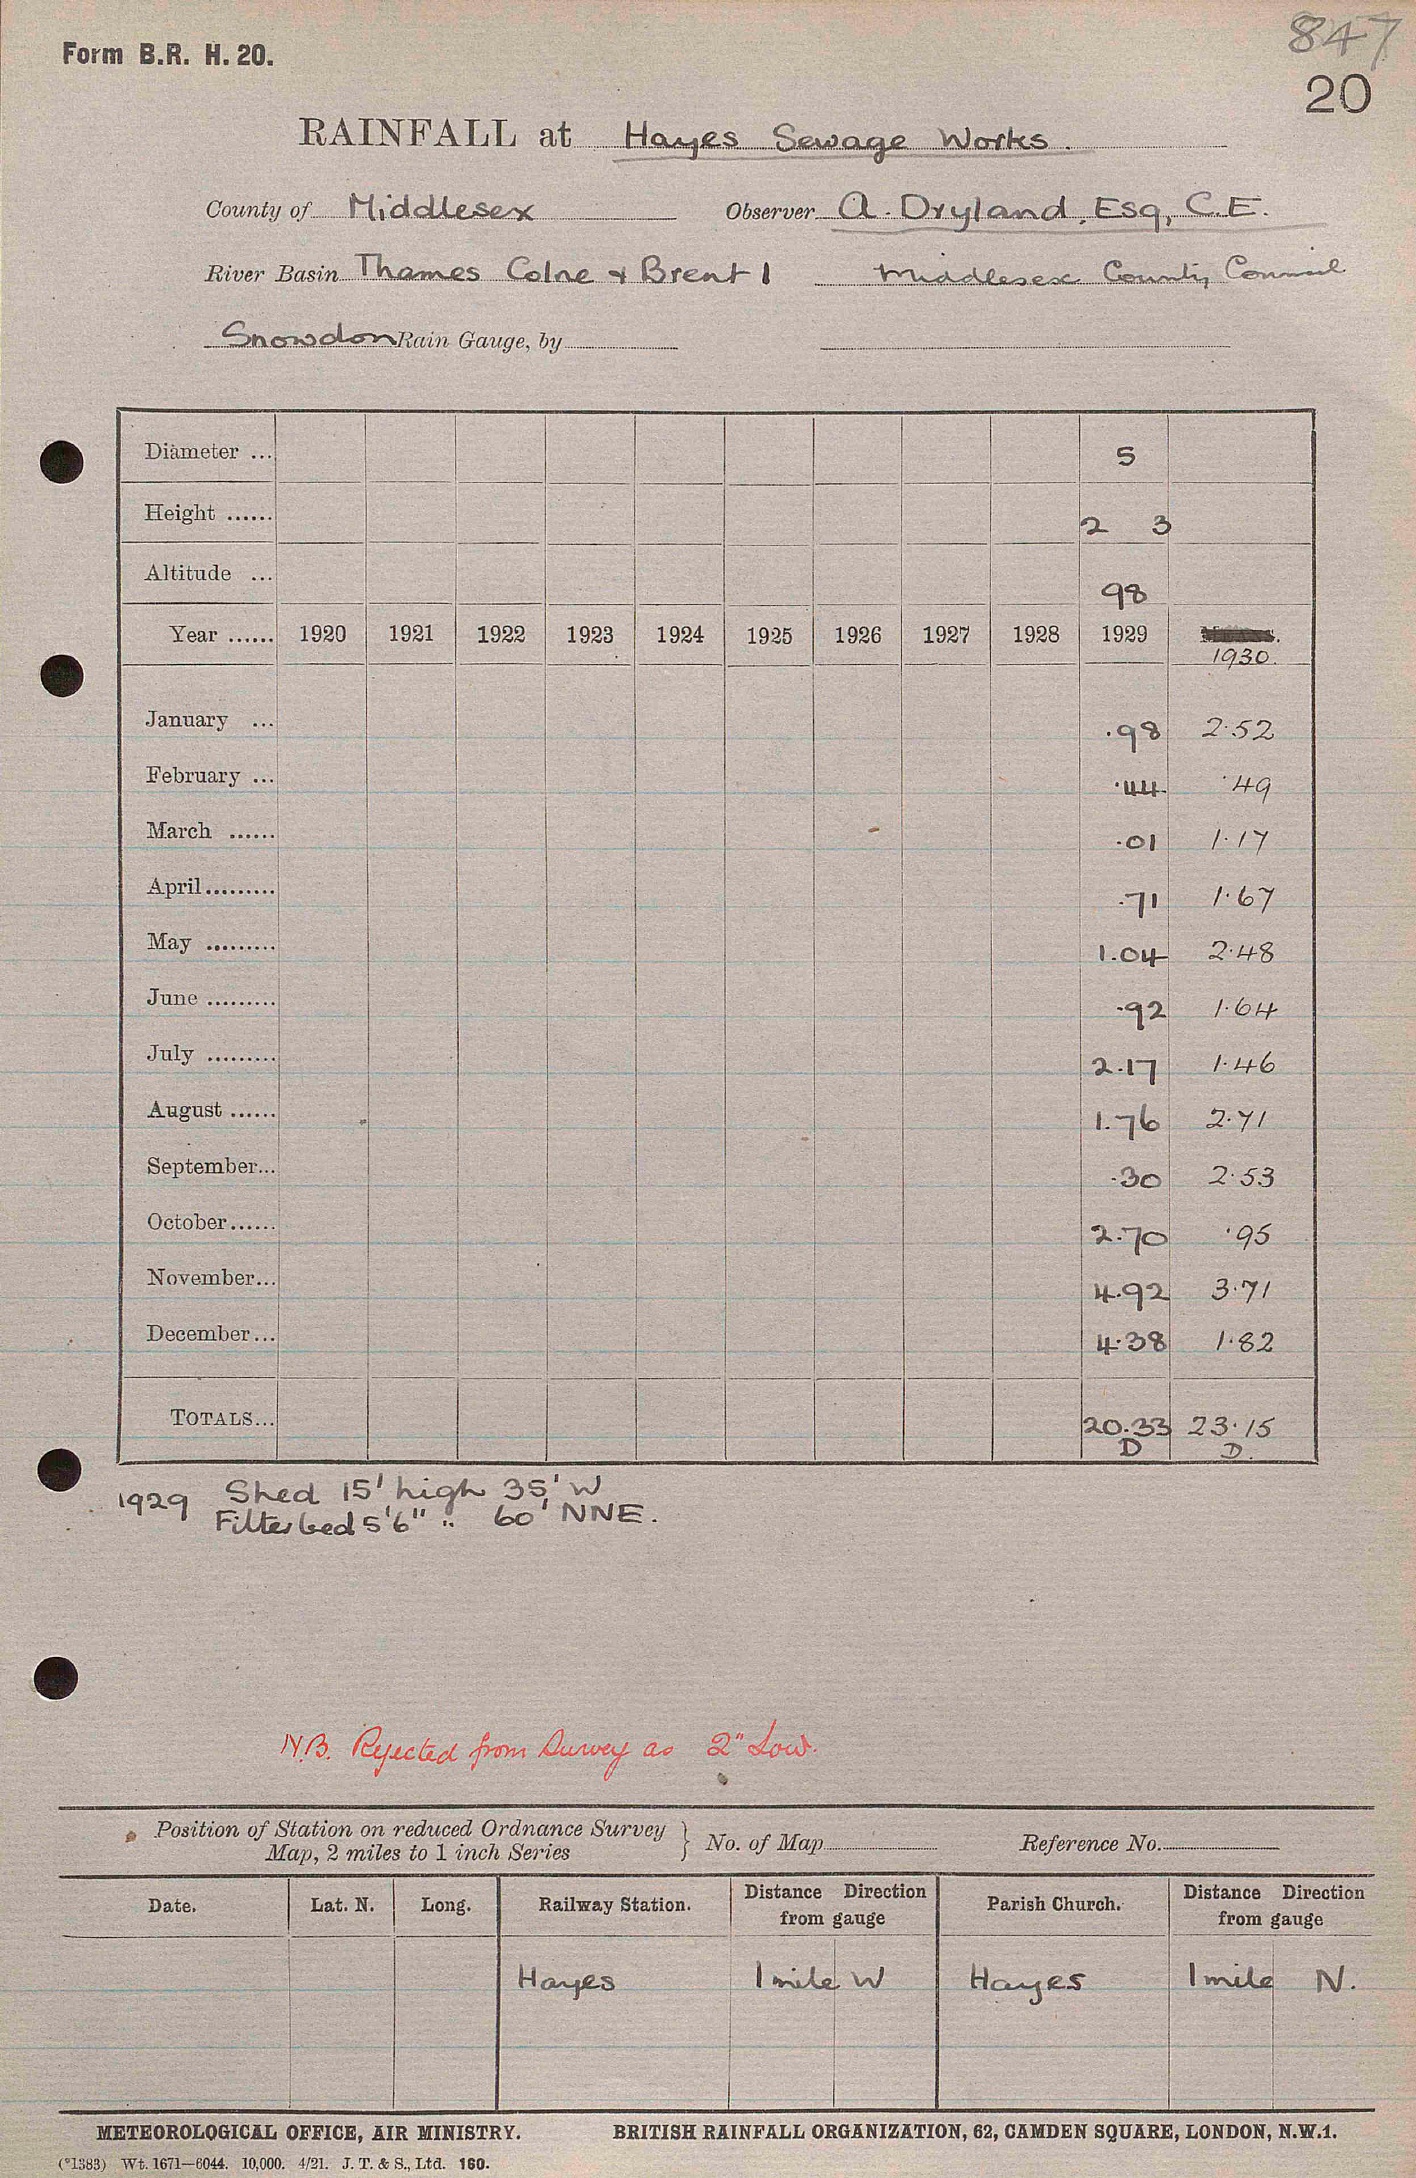 Form B.R. H. 20.
847
20
RAINFALL at Hayes Sewage Works.
County of Middlesex Observer A. Dryland, Esq, C.E.
River Basin Thames Colne & Brent 1 Middlesex County Council
Snowdon Rain Gauge, by
Diameter ... 5
Height ...... 2 3
Altitude ... 98
Year ...... 1920 1921 1922 1923 1924 1925 1926 1927 1928 1929
1930.
January ... .98 2.52
February ... .44 .49
March ...... .01 1.17
April ......... .71 1.67
May ......... 1.04 2.48
June ......... .92 1.64
July ......... 2.17 1.46
August ...... 1.76 2.71
September... .30 2.53
October ...... 2.70 .95
November... 4.92 3.71
December ... 4.38 1.82
TOTALS... 20.33 23.15
D D.
1929 Shed 15' high 35' W
Filter bed 5'6" " 60' NNE.
N.B. Rejected from Survey as 2" Low.
Position of Station on reduced Ordnance Survey
Map, 2 miles to 1 inch Series } No. of Map Reference No.
Date. Lat. N. Long. Railway Station. Distance Direction from gauge Parish Church. Distance Direction from gauge
Hayes 1 mile W Hayes 1 mile N.
METEOROLOGICAL OFFICE, AIR MINISTRY. BRITISH RAINFALL ORGANIZATION, 62, CAMDEN SQUARE, LONDON, N.W.1.
(*1383) Wt. 1671—6044. 10,000. 4/21. J. T. & S., Ltd. 160.